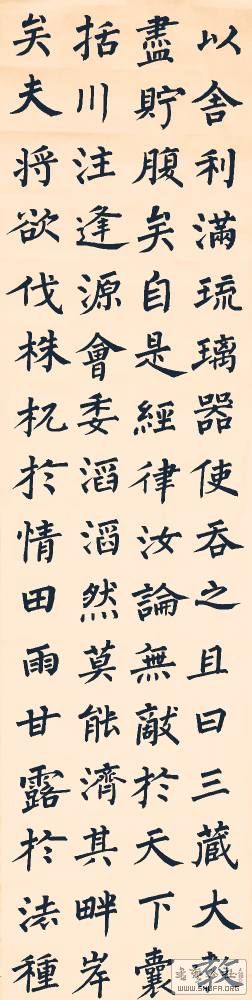 以舍利滿琉璃器使吞之且曰三藏大教
盡貯腹矣自是經律汝論無敵於天下囊
括川注逢源會委滔滔然莫能濟其畔岸
矣夫将欲伐株杌於情田雨甘露於法種
www.SHUFA.ORG